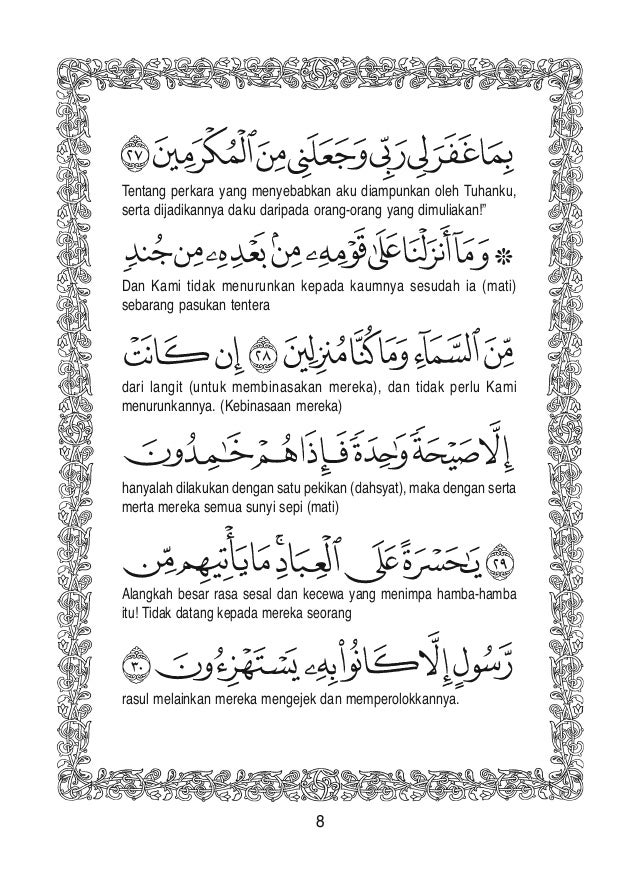 بِمَا غَفَرَ لِى رَبِّى وَجَعَلَنِى مِنَ ٱلْمُكْرَمِينَ ٢٧
Tentang perkara yang menyebabkan aku diampunkan oleh Tuhanku,
serta dijadikannya daku daripada orang-orang yang dimuliakan!”
۞ وَمَآ أَنزَلْنَا عَلَىٰ قَوْمِهِۦ مِنۢ بَعْدِهِۦ مِن جُندٍ
Dan Kami tidak menurunkan kepada kaumnya sesudah ia (mati)
sebarang pasukan tentera
مِّنَ ٱلسَّمَآءِ وَمَا كُنَّا مُنزِلِينَ ٢٨ إِن كَانَتْ
dari langit (untuk membinasakan mereka), dan tidak perlu Kami
menurunkannya. (Kebinasaan mereka)
إِلَّا صَيْحَةً وَٰحِدَةً فَإِذَا هُمْ خَـٰمِدُونَ
hanyalah dilakukan dengan satu pekikan (dahsyat), maka dengan serta
merta mereka semua sunyi sepi (mati)
٢٩ يَـٰحَسْرَةً عَلَى ٱلْعِبَادِ ۚ مَا يَأْتِيهِم مِّن
Alangkah besar rasa sesal dan kecewa yang menimpa hamba-hamba
itu! Tidak datang kepada mereka seorang
رَّسُولٍ إِلَّا كَانُوا۟ بِهِۦ يَسْتَهْزِءُونَ ٣٠
rasul melainkan mereka mengejek dan memperolokkannya.
8